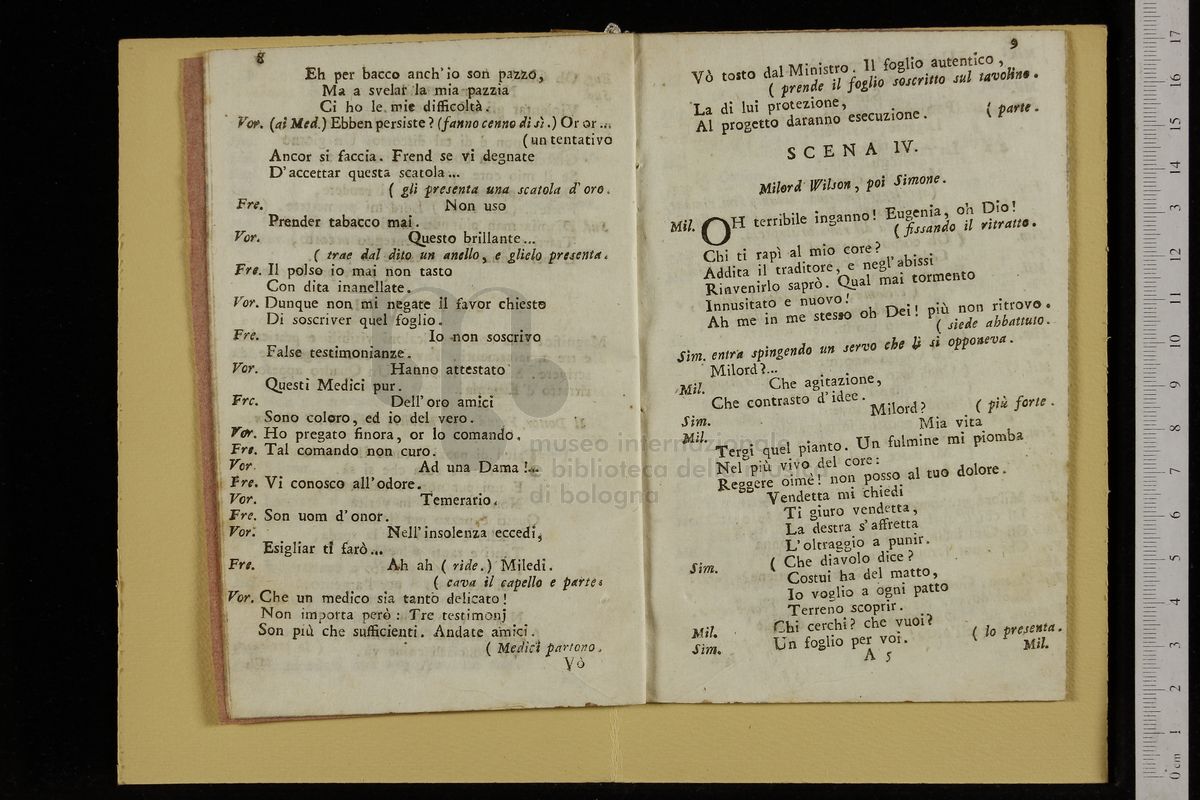 8
Eh per bacco anch'io son pazzo,
Ma a svelar la mia pazzia
Ci ho le mie difficoltà.
Vor. (ai Med.) Ebben persiste? (fanno cenno di sì.) Or or...
(un tentativo
Ancor si faccia. Frend se vi degnate
D'accettar questa scatola...
( gli presenta una scatola d'oro.
Fre. Non uso
Prender tabacco mai.
Vor. Questo brillante...
( trae dal dito un anello, e glielo presenta.
Fre. Il polso io mai non tasto
Con dita inanellate.
Vor. Dunque non mi negate il favor chiesto
Di soscriver quel foglio.
Fre. Io non soscrivo
False testimonianze.
Vor. Hanno attestato
Questi Medici pur.
Fre. Dell'oro amici
Sono coloro, ed io del vero.
Vor. Ho pregato finora, or lo comando.
Fre. Tal comando non curo.
Vor. Ad una Dama!...
Fre. Vi conosco all'odore.
Vor. Temerario.
Fre. Son uom d'onor.
Vor. Nell'insolenza eccedi,
Esigliar ti farò...
Fre. Ah ah ( ride.) Miledi.
( cava il capello e parte.
Vor. Che un medico sia tanto delicato!
Non importa però: Tre testimonj
Son più che sufficienti. Andate amici.
( Medici partono.
Vò
9
Vò tosto dal Ministro. Il foglio autentico,
( prende il foglio soscritto sul tavolino.
La di lui protezione,
Al progetto daranno esecuzione. ( parte.
SCENA IV.
Milord Wilson, poi Simone.
Mil. OH terribile inganno! Eugenia, oh Dio!
( fissando il ritratto.
Chi ti rapì al mio core?
Addita il traditore, e negl'abissi
Rinvenirlo saprò. Qual mai tormento
Innusitato e nuovo!
Ah me in me stesso oh Dei! più non ritrovo.
( siede abbattuto.
Sim. entra spingendo un servo che li si opponeva.
Milord?...
Mil. Che agitazione,
Che contrasto d'idee.
Sim. Milord? ( più forte.
Mil. Mia vita
Tergi quel pianto. Un fulmine mi piomba
Nel più vivo del core:
Reggere oimè! non posso al tuo dolore.
Vendetta mi chiedi
Ti giuro vendetta,
La destra s'affretta
L'oltraggio a punir.
Sim. ( Che diavolo dice?
Costui ha del matto,
Io voglio a ogni patto
Terreno scoprir.
Mil. Chi cerchi? che vuoi?
Sim. Un foglio per voi. ( lo presenta.
A 5 Mil.
museo internazionale
e biblioteca della musica
di bologna
0 cm 1 2 3 4 5 6 7 8 9 10 11 12 13 14 15 16 17